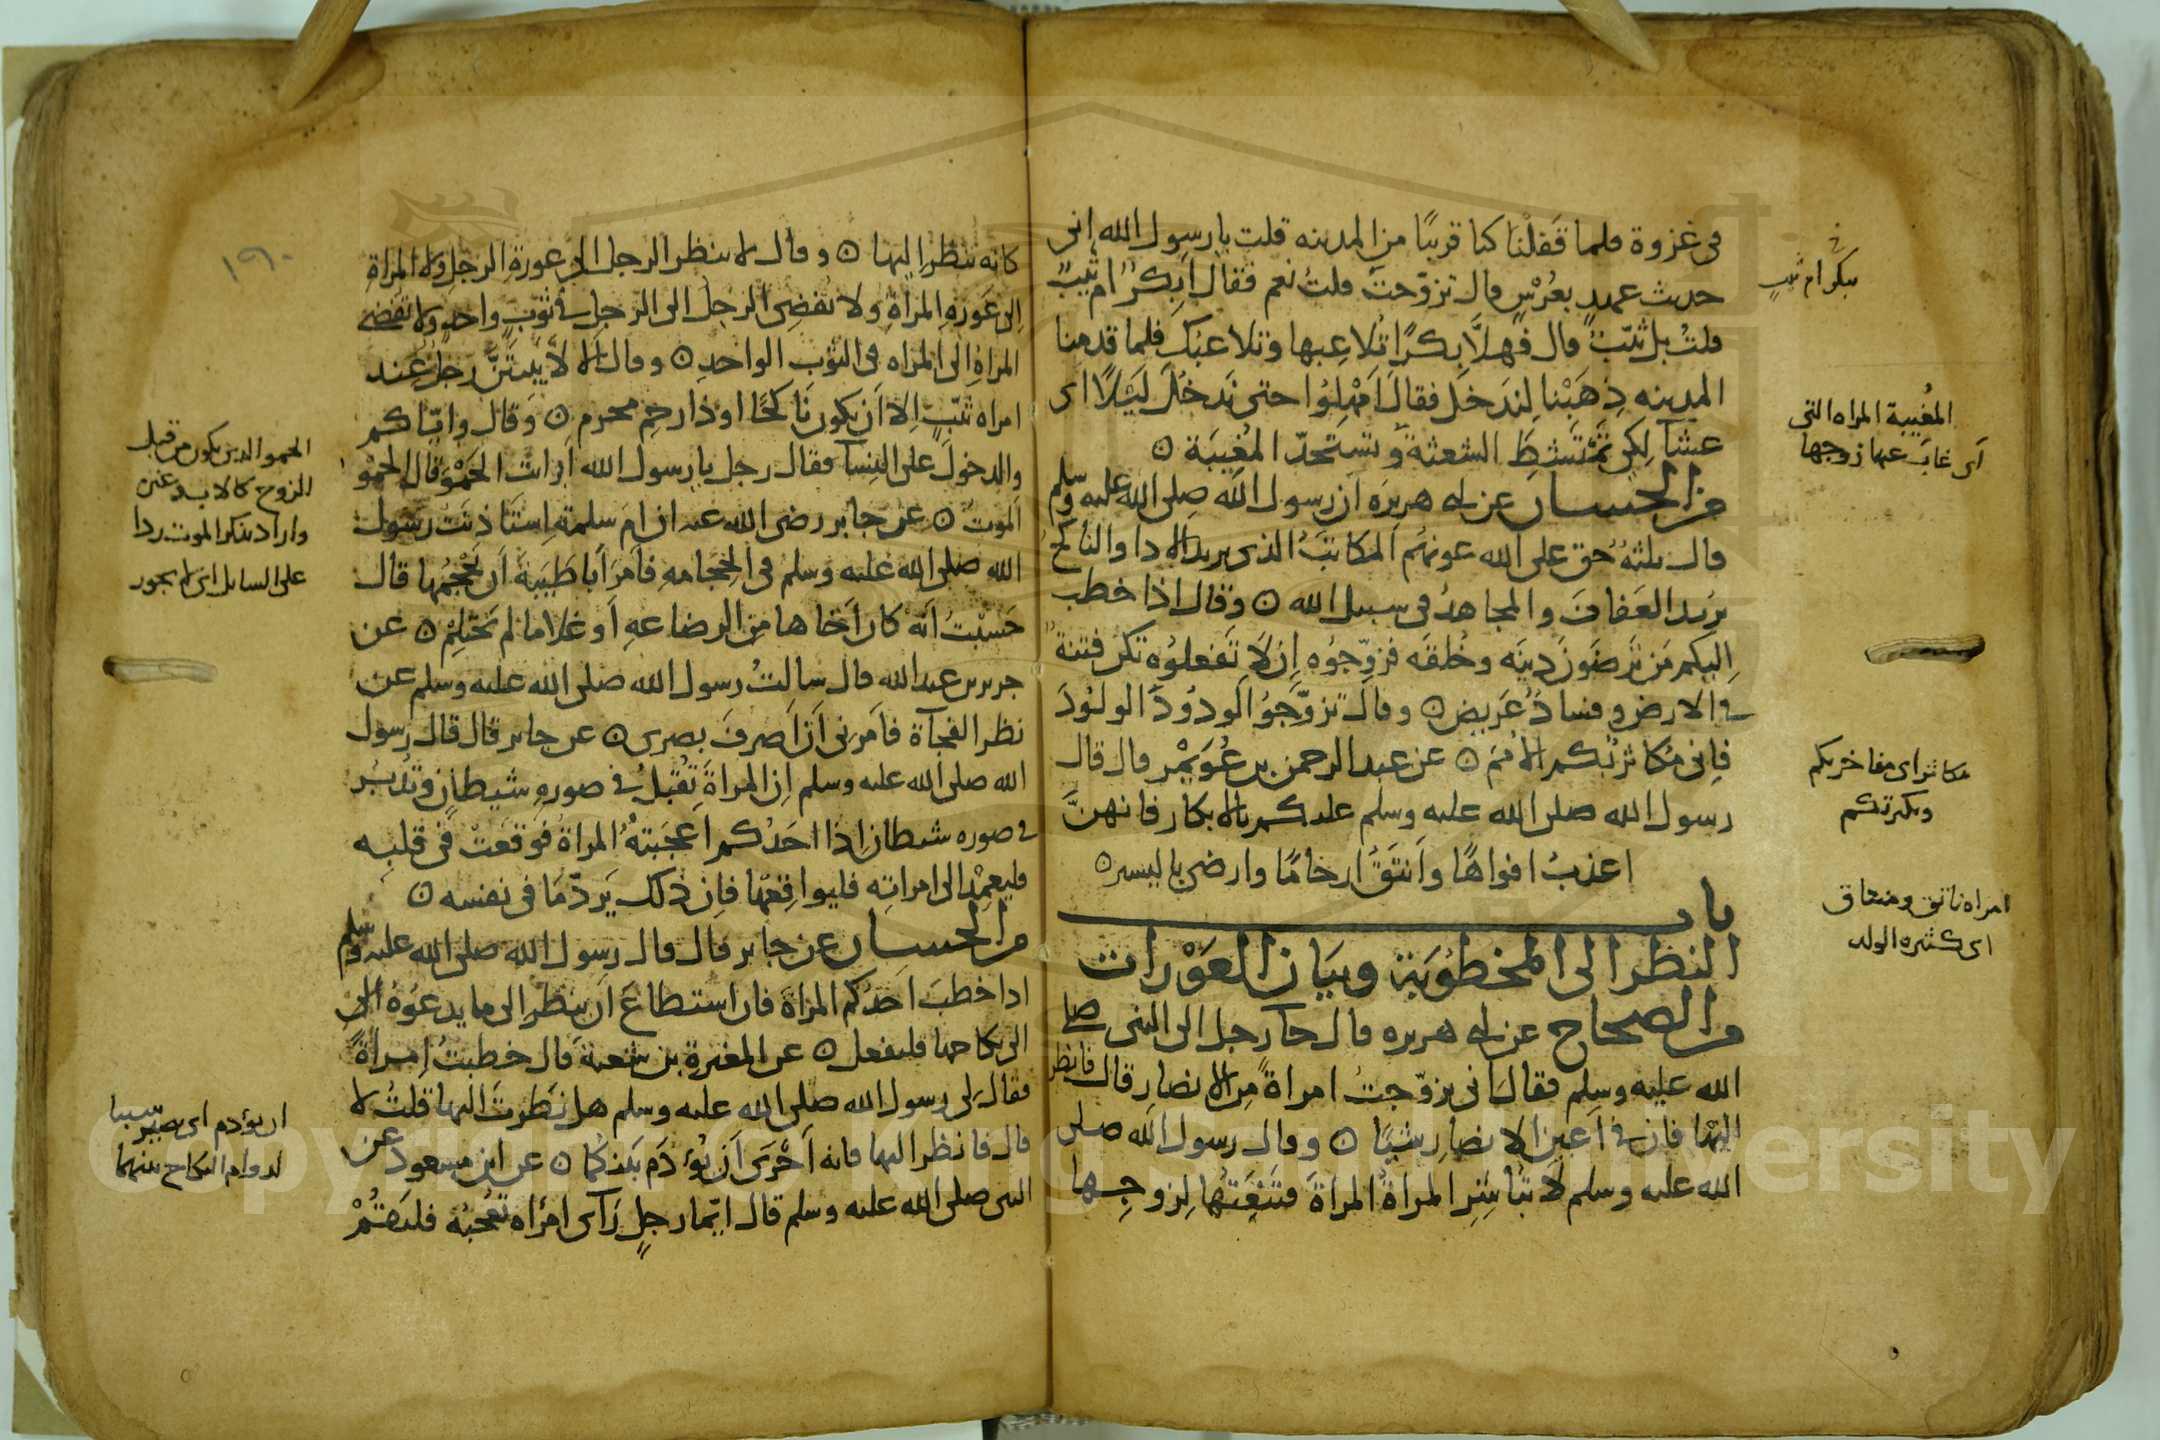 في غزوة فلما قَفَلْنا كنا قريبًا من المدينه قلت يا رسول الله انى
حديث عهدٍ بعُرْسٍ قال تزوّجتَ قلتُ نعم فقال اَبِكرٌ ام ثيبٌ
قلتُ بل ثيّبٌ قال فهلاَّ بكرًا تُلاعِبها وتلاعبك فلما قدمنا
المدينه ذهَبْنا لِندَخلَ فقالَ اَمْهِلُوا حتى نَدخُلَ لَيْلًا اى
عشآ لِكى تَمْتَشطَ الشعثة وتستَحدّ المُغِيبَة ن
من الحسان عن ابى هريره ان رسول الله صلى الله عليه وسلم
قال ثلثةٌ حق على الله عونهُم المكاتَبُ الذى يريد الادا والناكحُ
يريد العَفافَ والمجاهدُ فى سبيل الله ن وقال اذا خطب
اِليكم مَن تَرضَونَ دِينَه وخُلقَه فزوّجوُه اِن لاَ تَفعلوُه تكن فتنةٌ
فى الارض وفسادٌ عَريضٌ ن وقال تزوَّجوُا الودُودَ الولوُدَ
فاِنى مُكاثرٌ بُكم الامُمَ ن عن عبد الرحمن بن عُوَيْمٍر قال قال
رسول الله صلى الله عليه وسلم عليكم بالابكار فانهنَّ
اعذبُ افواهًا واَنتَقُ ارحامًا وارضى باليسير ن
باب
النظر الى المخطوُبَة وبَيَان العَوْرات
من الصحاح عن ابى هريره قال جآ رجل الى النبى صلى
الله عليه وسلم فقال انى تزوّجتُ امراةً من الانصار قال فانظر
اليْها فان فى اَعين الانصار شيًا ن وقال رسول الله صلى
الله عليه وسلم لاَ تبُاشِرِ المراةُ المراةَ فتَنْعَتُها لِزوجِها
فى
بكر ام ثيب
المُغيبة المراه التى
اَى غابَ عنها زوجها
مكاثر اى مفاخر بكم
وبكثرتكم
امراه ناتق ومنتاق
اى كثيره الولد
١٩٠
كانه ينظر اِليها ن وقال لا ينظر الرجل الى عورةِ الرجلِ ولا المراة
اِلى عَورةِ المراةِ ولا يُفضِى الرجلُ الى الرّجل فى ثوبٍ واحدٍ ولا تفضى
المراة اِلى المراه فى الثوب الواحدِ ن وقال الا لاَ يَبيتَنَّ رَجلٌ عند
امراه ثيّبٍ اِلا اَن يكون ناكحًا او ذا رحِمٍ محرم ن وقال وايّاكم
والدخولَ على النِسآ فقال رجل يا رسول الله اَرايتَ الحَمْوَ قال الحموُ
الموتُ ن عن جابر رضى الله عنه ان امَ سلمة اِستَاذنَتْ رسول
الله صلى الله عليه وسلم فى الحِجَامهِ فاَمرَ اَبا طَيبةَ اَن يَحجُمها قال
حَسبْتُ اَنه كان اَخاها من الرضاعهِ اَو غلامًا لم يَحتلِمْ ن عن
جرير بن عبد الله قال سالتُ رسول الله صلى الله عليه وسلم عن
نظر الفجآة فاَمَرنى اَن اَصرفَ بصرى ن عن جابر قال قال رسول
الله صلى الله عليه وسلم اِن المراةَ تُقبلُ فى صورهِ شيطانٍ وتُدبرُ
فى صوره شيطان اِذا احَدُكم اعجَبتهُ المراةُ فوقعَتْ فى قلبِه
فليعمِدْ الى امراتِه فليواقِعها فاِن ذلك يَردّ مَا فى نفسه ن
من الحسان عن جابر قال قال رسول الله صلى الله عليه وسلم
اذا خطبَ اَحَدُكم المراةَ فان استطاعَ اَن ينظرَ الى ما يدعوُهُ الى
الى نكاحها فليفعل ن عن المغيرةِ بن شعبة قال خطبتُ امراةً
فقال لى رسول الله صلى الله عليه وسلم هل نَظرتَ اليها قلتُ لا
قال فانظر اليها فانه اَحْرَى اَن يُؤدَم بَينكُما ن عن ابن مسعود عن
النبى صلى الله عليه وسلم قال ايّما رجلٍ رَآى امرأه تُعجبُه فليَقُمْ
الحمو الذين يكون من قبل
الزوج كالاب وغيره
واراد بذكر الموت ردا
على السايل اى لم يجوز
ان يؤدم اى يصير سببا
لدوام النكاح بينهما
Copyright © King Saud University